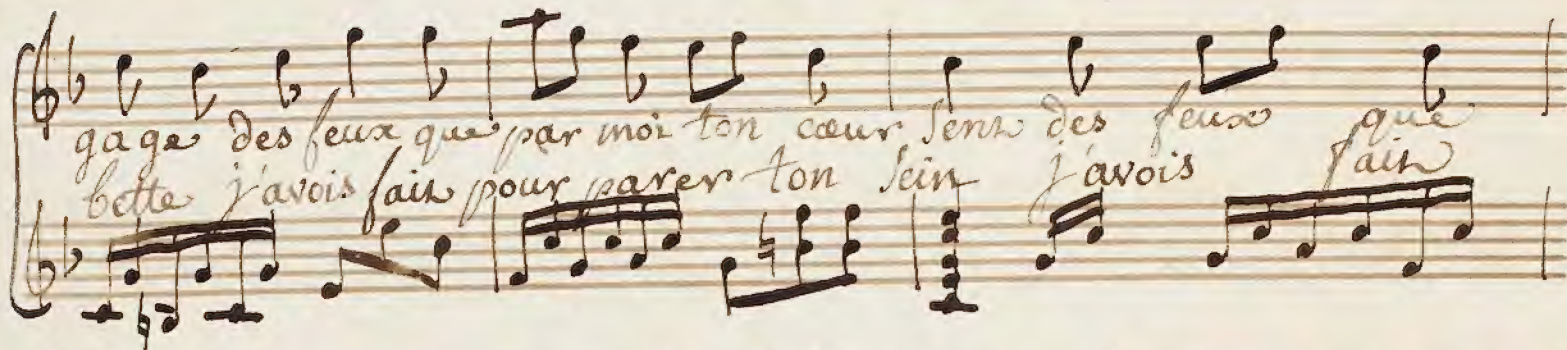 gage des feux que par moi ton cœur sent des feux que
bette j'avois fait pour parer ton sein j'avois fait